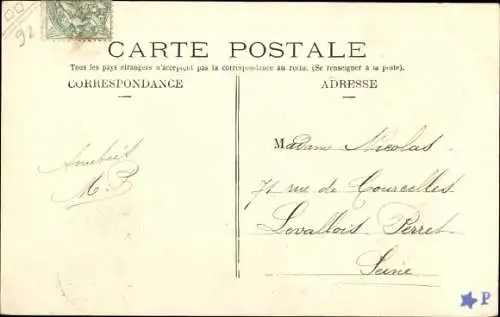 92
CARTE POSTALE
Tous les pays étrangers n'acceptent pas la correspondance au recto. (Se renseigner à la poste).
CORRESPONDANCE
ADRESSE
Madame Nicolas
71 rue de Courcelles
Levallois Perret
Seine
Amitiés
M. P
P